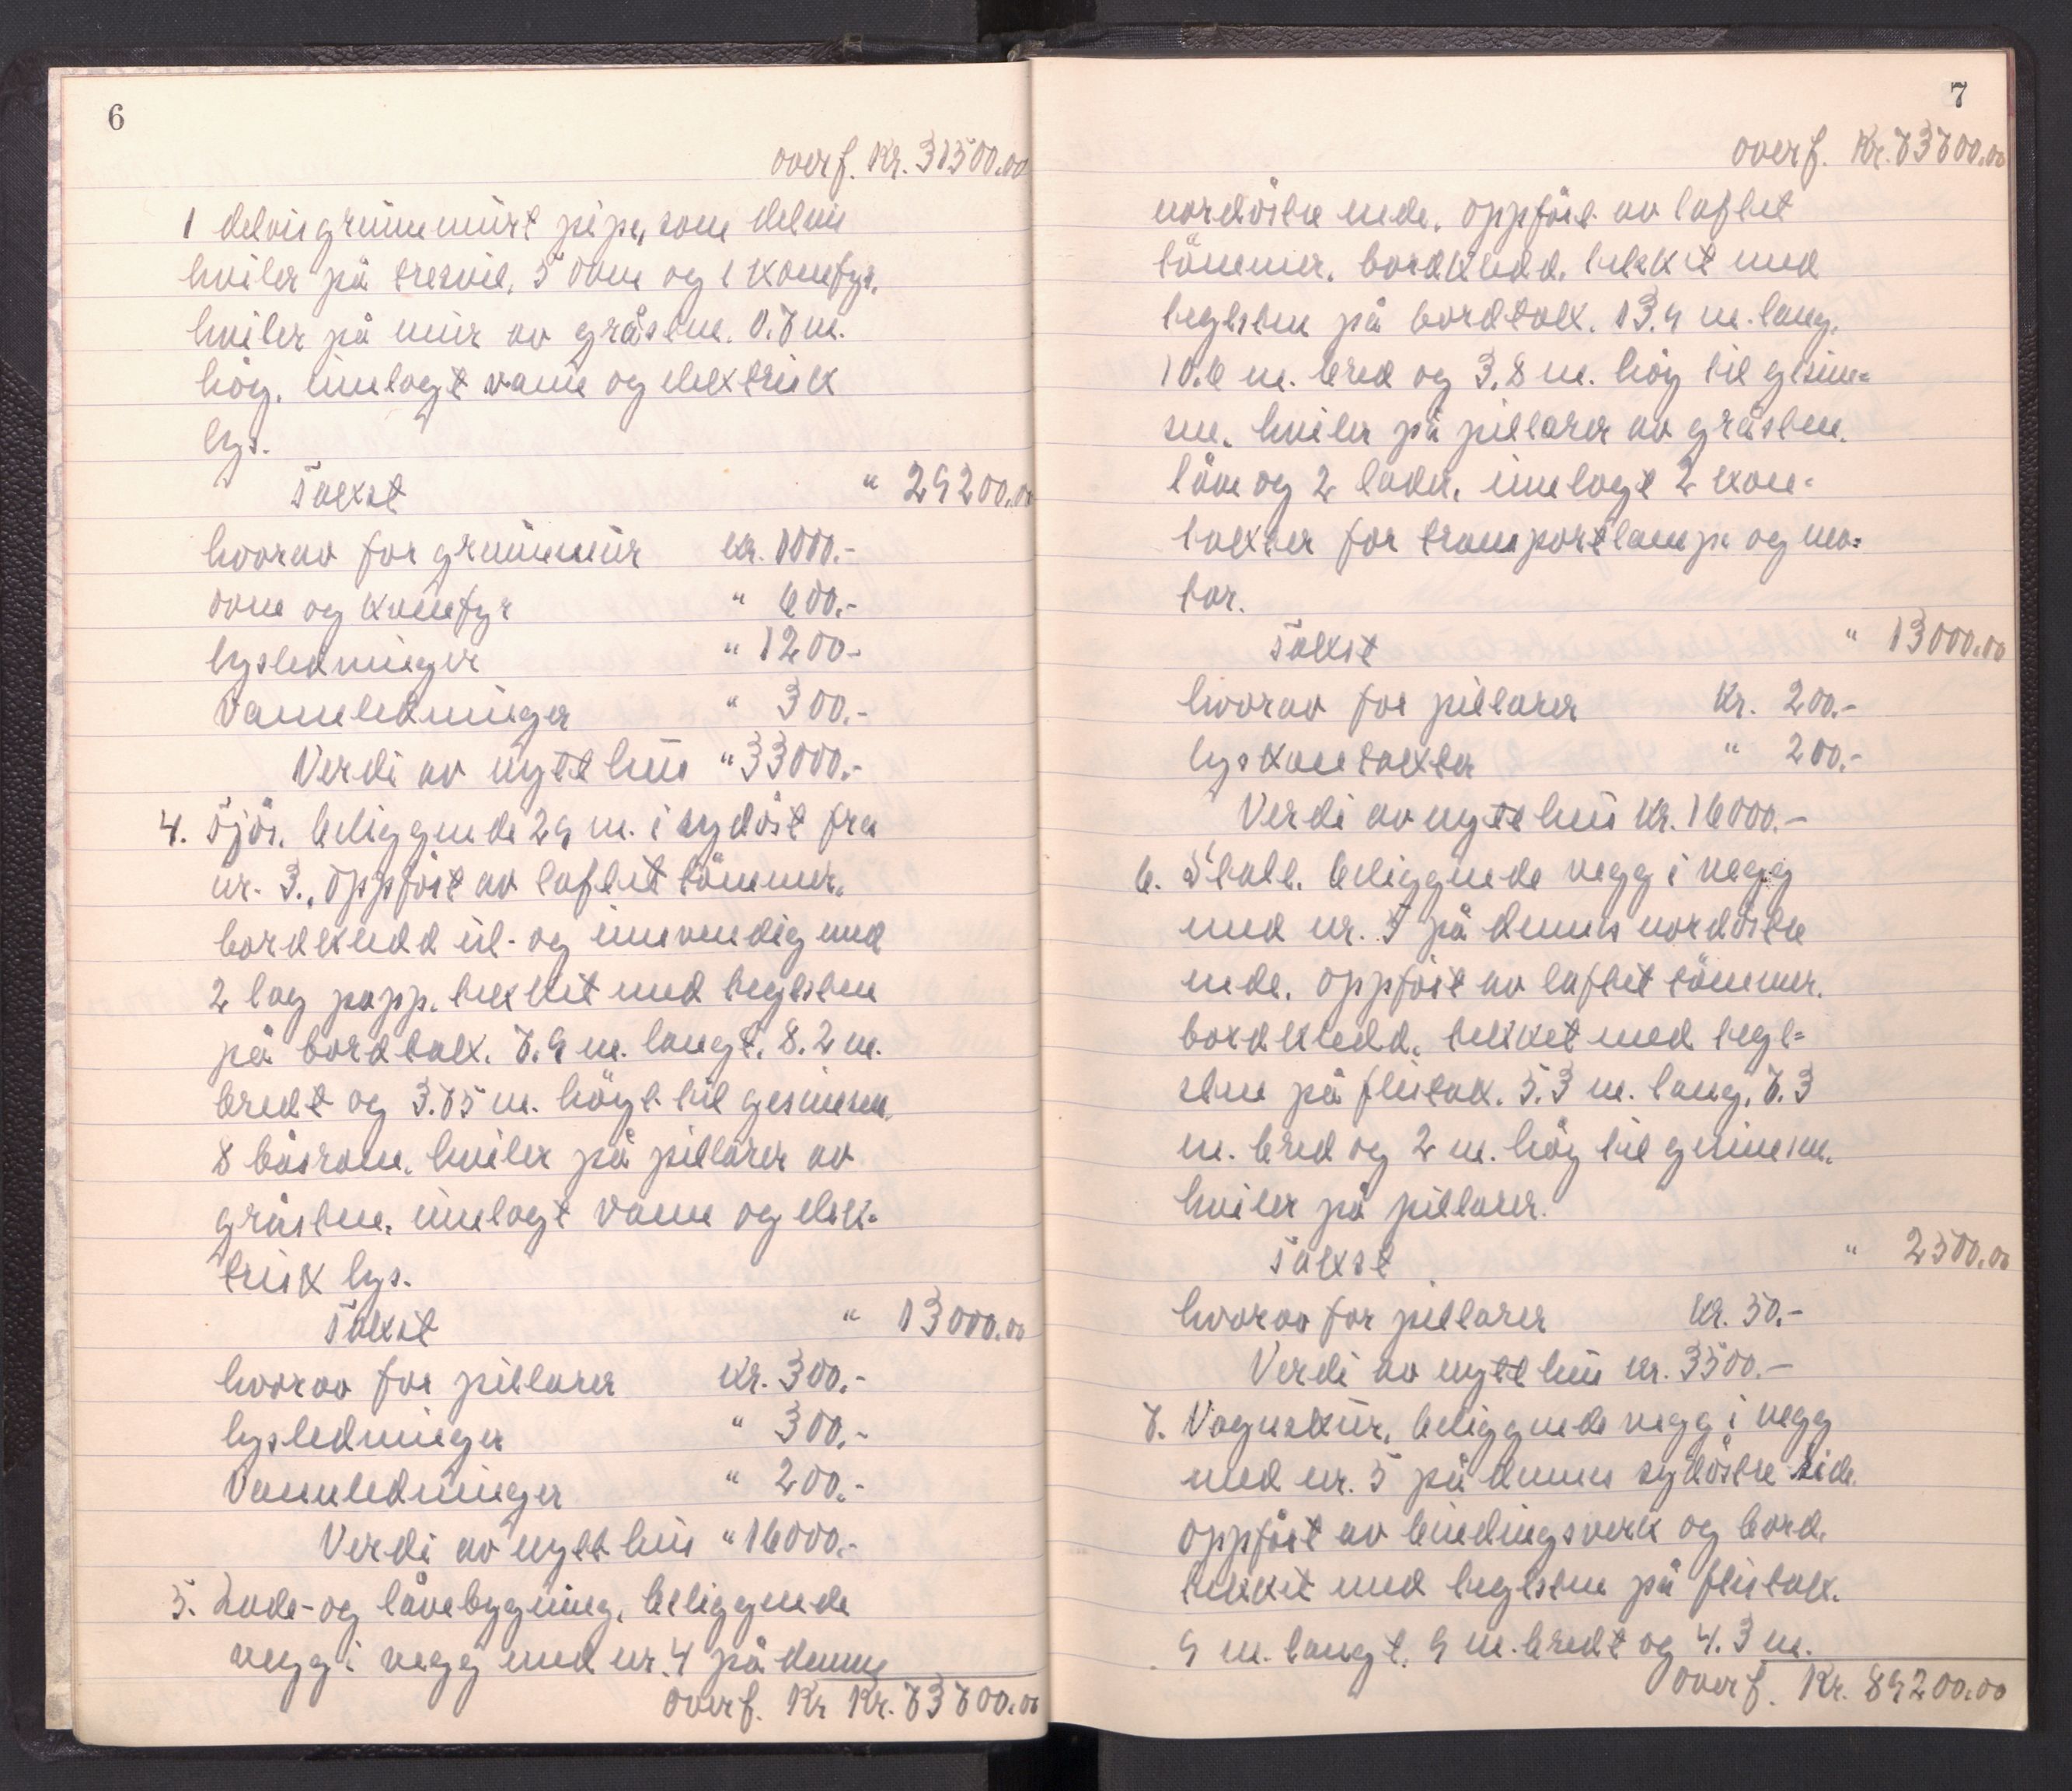 6
overf. Kr. 31500.00
1 delvis grunnmürt pipe, som delvis
hviler på tresvil, 5 ovne og 1 komfyr.
hviler på mür av gråsten. 0.7 m.
høg. innlagt vann og elektrisk
lys.
Takst " 29200.00
hvorav for grunnmür Kr. 1000.-
ovne og komfyr " 600.-
lysledninger " 1200-
Vannledninger " 300.-
Verdi av nytt hüs " 33000.-
4. Fjös. beliggende 29 m. i sydöst fra
nr. 3., oppföst av laftet tömmer.
bordkledd üt- og innvendig med
2 lag papp. tekket med teglsten
på bordtak. 7.9 m. langt. 8.2 m.
bredt og 3.75 m. högt til gesimsen.
8 båsrom. hviler på pillarer av
gråsten. innlagt vann og elek-
trisk lys.
Takst " 13000.00
hvorav for pillarer Kr. 300.-
lysledninger " 300.-
Vannledninger " 200.-
Verdi av nytt hüs " 16000.-
5. Lade- og låvebygning, beliggende
vegg i vegg med nr. 4 på denne
overf. Kr Kr. 73700.00
7
overf. Kr. 73700.00
nordöstre ende. oppföst av laftet
tömmer. bordkledd. tekket med
teglsten på bordtak. 13.9 m. lang.
10.6 m. bred og 3.8 m. höy til gesim-
sen. hviler på pillarer av gråsten.
låve og 2 lader. innlagt 2 kon-
takter for transportlampe og mo-
tor.
Takst " 13000.00
hvorav for pillarer Kr. 200.-
lyskontakter " 200.-
Verdi av nytt hüs Kr. 16000.-
6. Stall. beliggende vegg i vegg
med nr. 5 på dennes nordöstre
ende. oppföst av laftet tömmer.
bordkledd. tekket med tegl-
sten på flistak. 5.3 m. lang. 7.3
m. bred og 2 m. höy til gesimsen.
hviler på pillarer.
Takst " 2500.00
hvorav for pillarer Kr. 50.-
Verdi av nytt hüs Kr. 3500.-
7. Vognskür. beliggende vegg i vegg
med nr. 5 på dennes sydöstre side.
oppföst av bindingsverk og bord.
tekket med teglsten på flistak.
9 m. langt. 9 m. bredt og 4.3 m.
overf. Kr. 89200.00